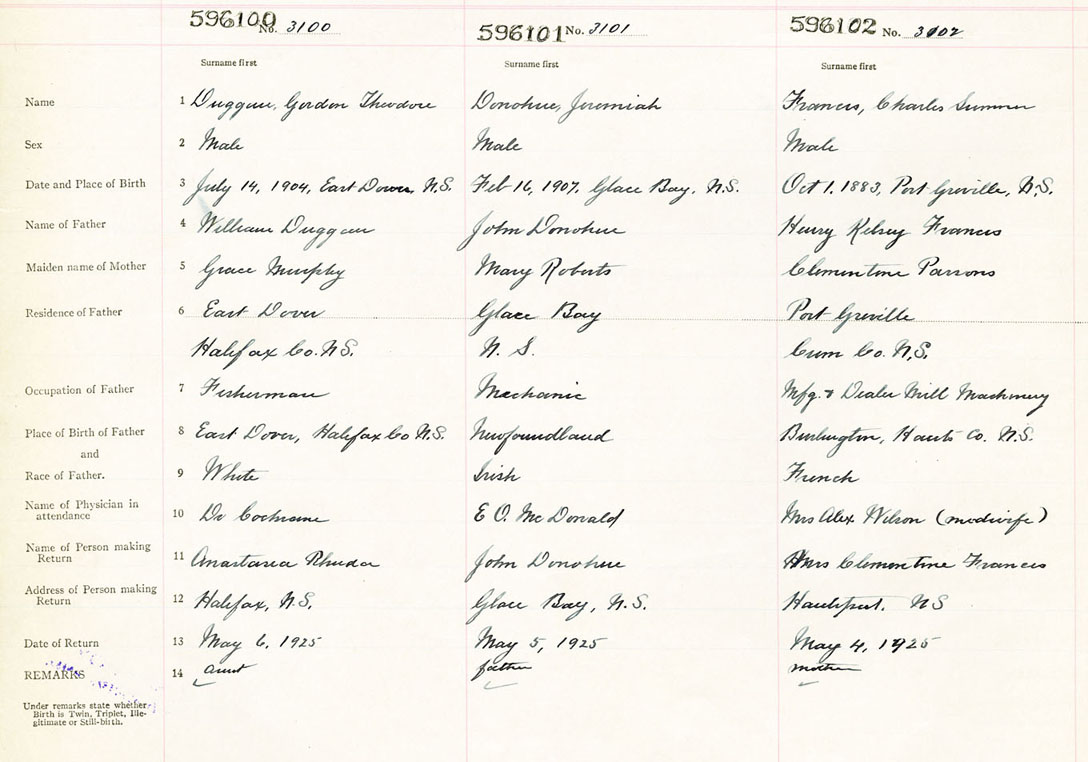 596100 No. 3100 596101 No. 3101 596102 No. 3102
Surname first Surname first Surname first
Name 1 Duggan, Gordon Theodore Donohue, Jeremiah Francis, Charles Sumner
Sex 2 Male Male Male
Date and Place of Birth 3 July 14, 1904, East Dover, N.S. Feb 16, 1907, Glace Bay, N.S. Oct 1. 1883, Port Greville, N.S.
Name of Father 4 William Duggan John Donohue Henry Kelsey Francis
Maiden name of Mother 5 Grace Murphy Mary Roberts Clementine Parsons
Residence of Father 6 East Dover Glace Bay Port Greville
Halifax Co. N.S. N. S. Cum Co. N.S.
Occupation of Father 7 Fisherman Mechanic Mfg. & Dealer Mill Machinery
Place of Birth of Father 8 East Dover, Halifax Co N.S. Newfoundland Burlington, Hants Co. N.S.
and
Race of Father. 9 White Irish French
Name of Physician in
attendance 10 Dr Cochrane E O. McDonald Mrs Alex Wilson (midwife)
Name of Person making
Return 11 Anastasia Rhuda John Donohue Mrs Clementine Francis
Address of Person making
Return 12 Halifax, N.S. Glace Bay, N.S. Hantsport. NS
Date of Return 13 May 6, 1925 May 5, 1925 May 4, 1925
REMARKS 14 aunt father mother
Under remarks state whether
Birth is Twin, Triplet, Ille-
gitimate or Still-birth.